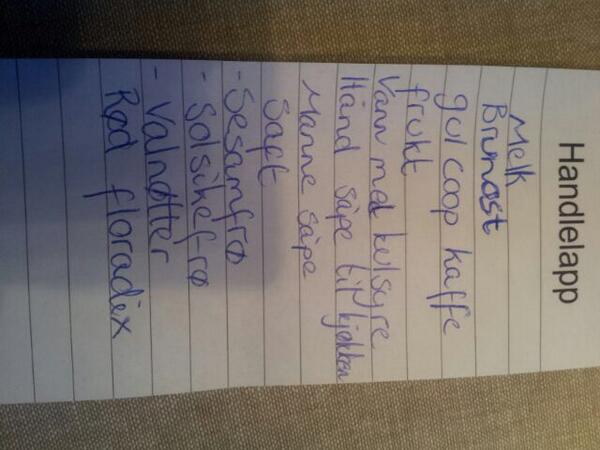 Handlelapp
Melk
Brunost
gul coop kaffe
frukt
Vann med kulsyre
Hånd såpe til kjøkken
Manne såpe
Saft
- Sesamfrø
- Solsikefrø
- Valnøtter
Rød floradix